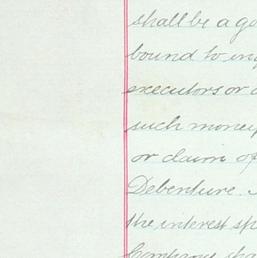 shall be a go
bound to inq
executors or a
such money
or claim of
Debenture.
the interest sp
Company sha